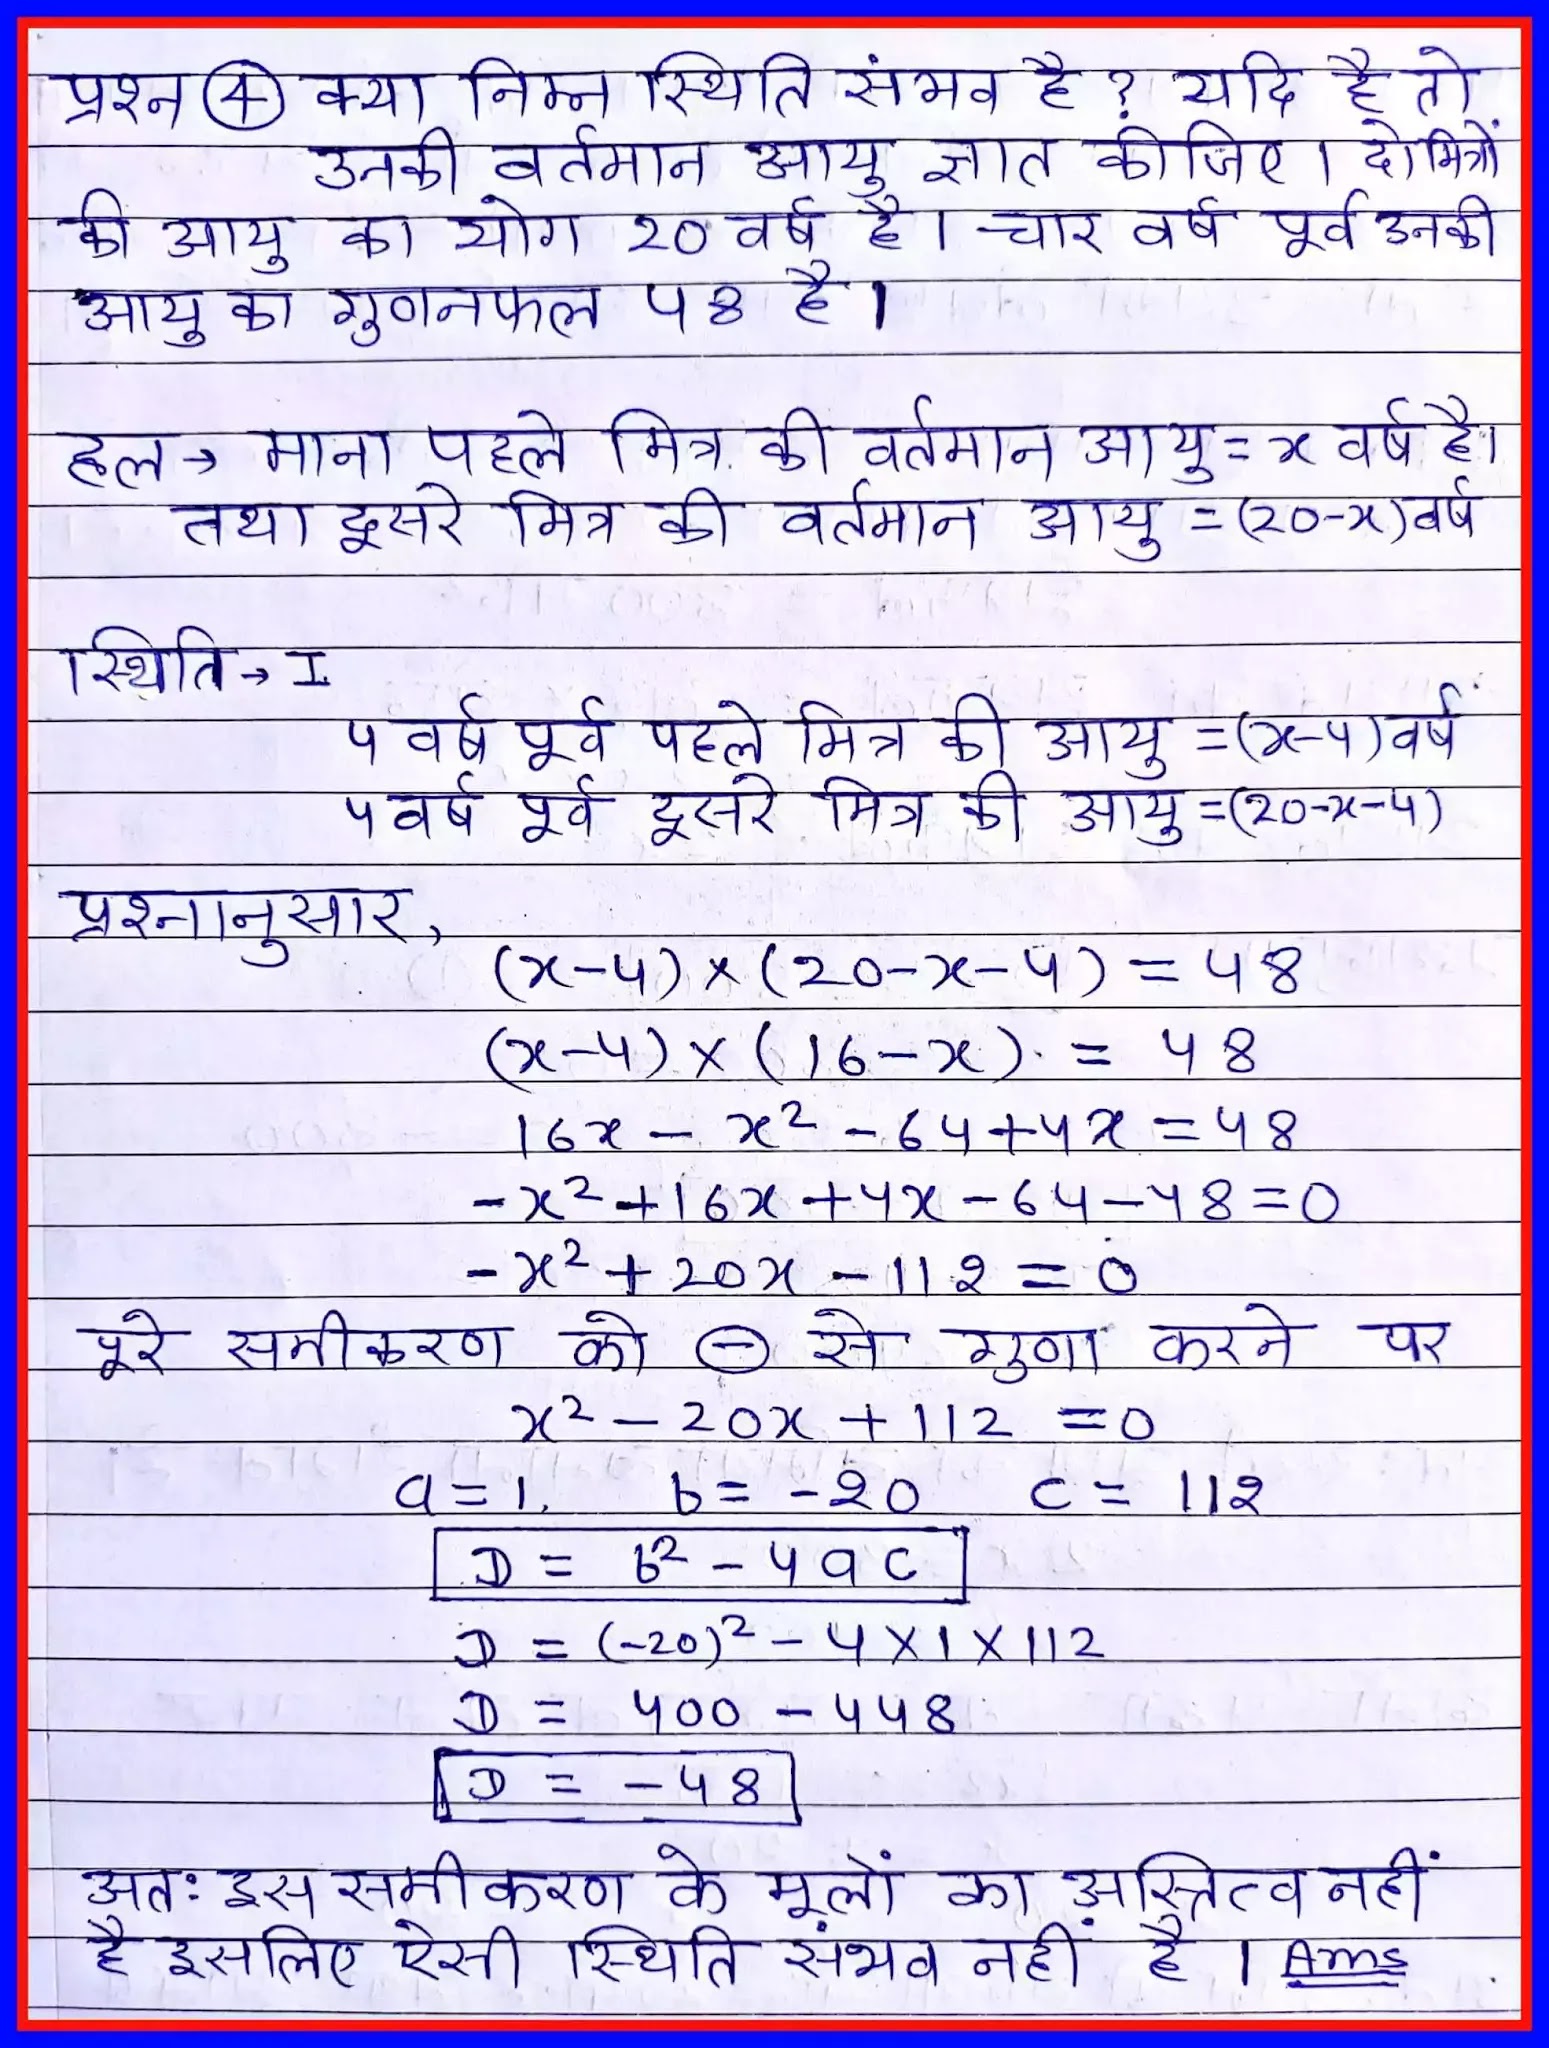 प्रश्न ④ क्या निम्न स्थिति संभव है ? यदि है तो
उनकी वर्तमान आयु ज्ञात कीजिए । दो मित्रों
की आयु का योग 20 वर्ष है । चार वर्ष पूर्व उनकी
आयु का गुणनफल 48 है ।
हल → माना पहले मित्र की वर्तमान आयु = x वर्ष है।
तथा दूसरे मित्र की वर्तमान आयु = (20-x) वर्ष
स्थिति → I
4 वर्ष पूर्व पहले मित्र की आयु = (x-4) वर्ष
4 वर्ष पूर्व दूसरे मित्र की आयु = (20-x-4)
प्रश्नानुसार,
(x-4) × (20-x-4) = 48
(x-4) × (16-x) = 48
16x - x² - 64 + 4x = 48
-x² + 16x + 4x - 64 - 48 = 0
-x² + 20x - 112 = 0
पूरे समीकरण को ⊖ से गुणा करने पर
x² - 20x + 112 = 0
a = 1, b = -20 c = 112
D = b² - 4ac
D = (-20)² - 4 × 1 × 112
D = 400 - 448
D = -48
अतः इस समीकरण के मूलों का अस्तित्व नहीं
है इसलिए ऐसी स्थिति संभव नहीं है । Ans